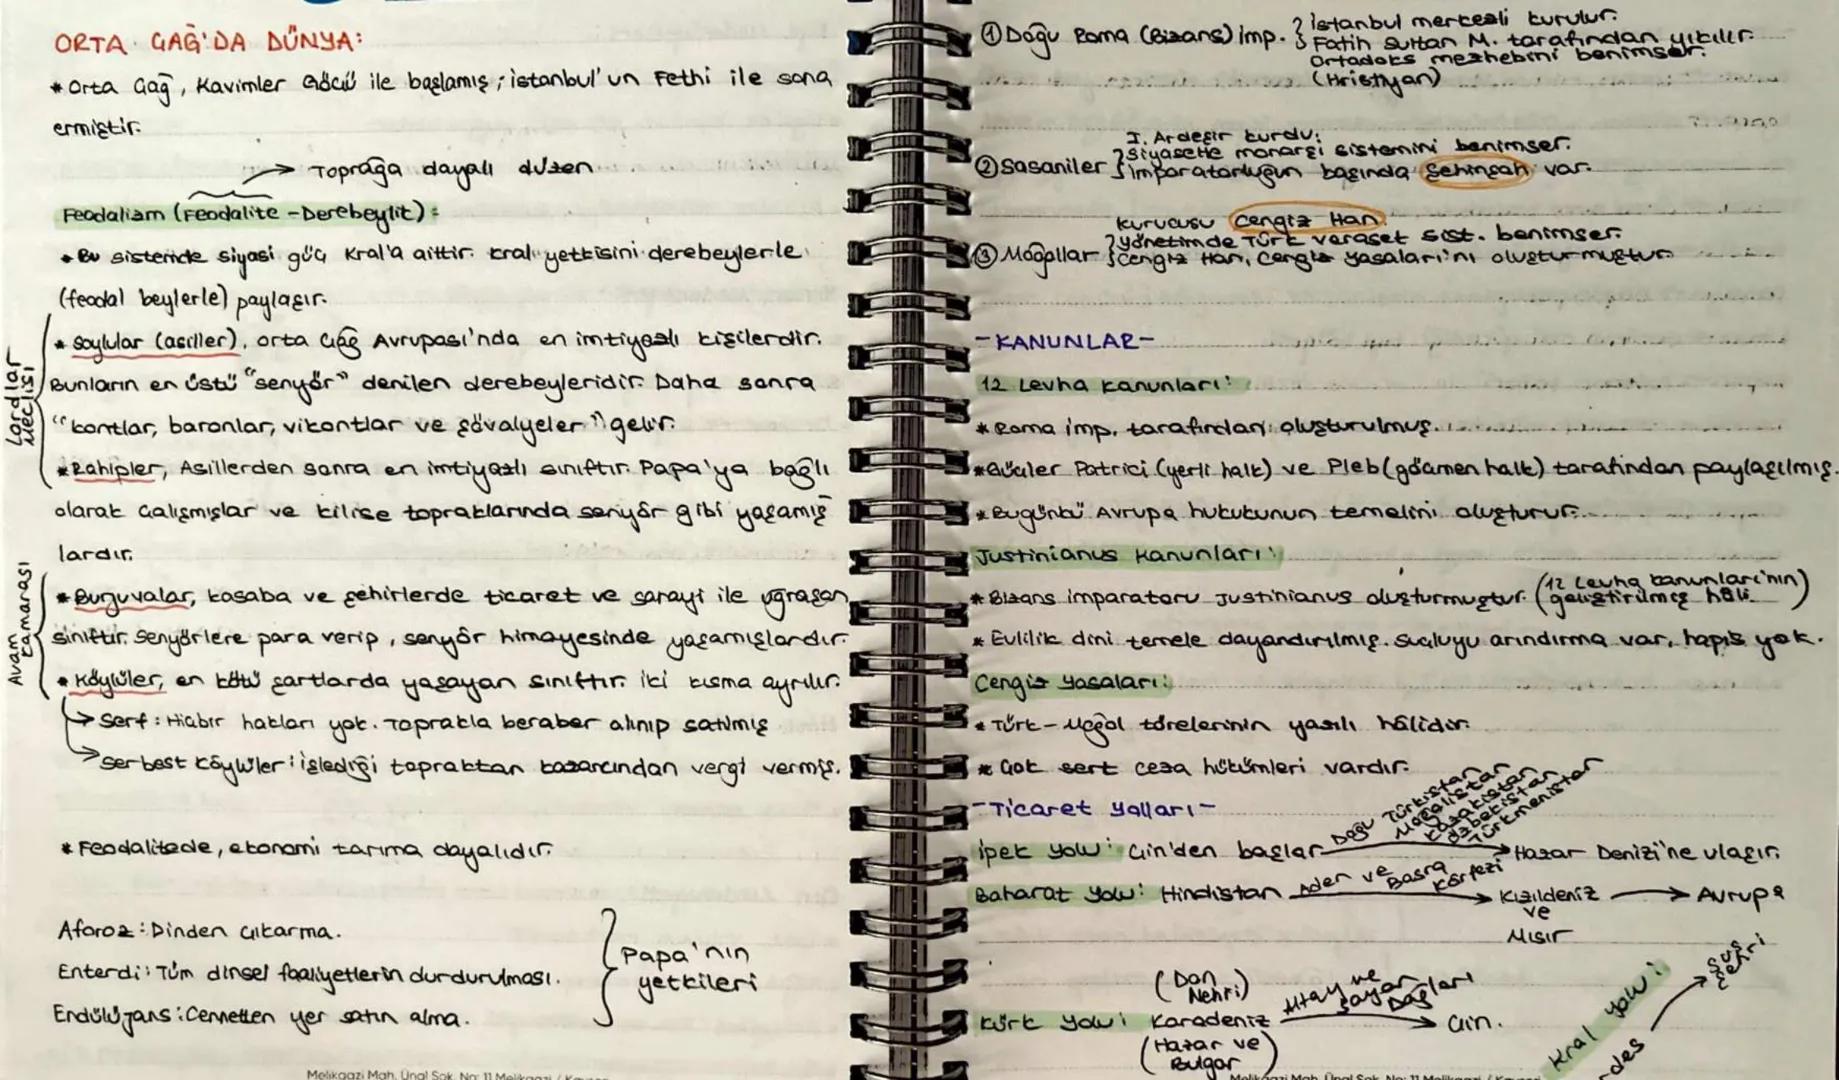 ORTA ÇAĞ'DA DÜNYA:
* Orta Çağ, Kavimler Göçü ile başlamış; İstanbul'un Fethi ile sona
ermiştir.
→ Toprağa dayalı düzen
Feodalizm (Feodalite - Derebeylik):
* Bu sistemde siyasi güç Kral'a aittir. Kral yetkisini derebeylerle
(feodal beylerle) paylaşır.
Lordlar Meclisi
* Soylular (asiller), orta Çağ Avrupası'nda en imtiyazlı kişilerdir.
Bunların en üstü "senyör" denilen derebeyleridir. Daha sonra
"kontlar, baronlar, vikontlar ve şövalyeler" gelir.
* Rahipler, Asillerden sonra en imtiyazlı sınıftır. Papa'ya bağlı
olarak çalışmışlar ve kilise topraklarında senyör gibi yaşamış
lardır.
Avam Kamarası
* Burjuvalar, kasaba ve şehirlerde ticaret ve sanayi ile uğraşan
sınıftır. Senyörlere para verip, senyör himayesinde yaşamışlardır.
* Köylüler, en kötü şartlarda yaşayan sınıftır. İki kısma ayrılır.
→ Serf: Hiçbir hakları yok. Toprakla beraber alınıp satılmış
→ Serbest Köylüler: işlediği topraktan kazancından vergi vermiş.
* Feodalitede, ekonomi tarıma dayalıdır.
Aforoz: Dinden çıkarma.
Enterdi: Tüm dinsel faaliyetlerin durdurulması.
Endülüjans: Cennetten yer satın alma.
Papa'nın
yetkileri
Melikgazi Mah. Ünal Sok. No: 11 Melikgazi /
① Doğu Roma (Bizans) imp.
İstanbul merkezli kurulur.
Fatih Sultan M. tarafından yıkılır.
Ortadoks mezhebini benimser.
(Hristiyan)
I. Ardeşir kurdu.
Siyasette monarşi sistemini benimser.
② Sasaniler İmparatorluğun başında Şehinşah var.
Kurucusu Cengiz Han
Yönetimde Türk veraset sist. benimser.
③ Moğollar Cengiz Han, Cengiz yasaları'nı oluşturmuştur.
- KANUNLAR -
12 Levha Kanunları:
* Roma imp. tarafından oluşturulmuş.
* Güçler Patrici (yerli halk) ve Pleb (göçmen halk) tarafından paylaşılmış.
* Bugünkü Avrupa hukukunun temelini oluşturur.
Justinianus Kanunları:
* Bizans imparatoru Justinianus oluşturmuştur. (12 Levha kanunları'nın geliştirilmiş hâli.)
* Evlilik dini temele dayandırılmış. Suçluyu arındırma var, hapis yok.
Cengiz Yasaları:
* Türk - Moğol törelerinin yazılı hâlidir.
* Çok sert ceza hükümleri vardır.
- Ticaret Yolları -
Doğu Türkistan
Moğolistan
Kazakistan
Özbekistan
Türkmenistan
İpek Yolu: Çin'den başlar → Hazar Denizi'ne ulaşır.
Baharat Yolu: Hindistan Aden ve Basra Körfezi → Kızıldeniz ve Mısır → Avrupa
(Don Nehri)
Kürk Yolu: Karadeniz Altay ve Sayan Dağları → Çin.
(Hazar ve Bulgar)
Kral Yolu:
Sus Şehri
Melikgazi Mah. Ünal Sok. No: 11 Melikgazi /